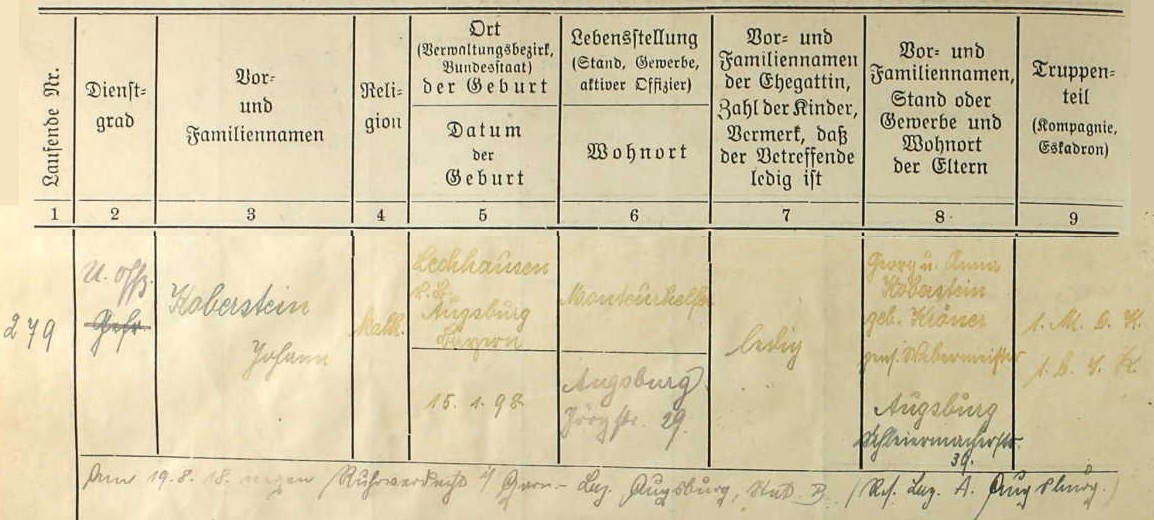 Laufende Nr.
Dienst-
grad
Vor-
und
Familiennamen
Reli-
gion
Ort
(Verwaltungsbezirk,
Bundesstaat)
der Geburt
Datum
der
Geburt
Lebensstellung
(Stand, Gewerbe,
aktiver Offizier)
Wohnort
Vor- und
Familiennamen
der Ehegattin,
Zahl der Kinder,
Vermerk, daß
der Betreffende
ledig ist
Vor- und
Familiennamen,
Stand oder
Gewerbe und
Wohnort
der Eltern
Truppen-
teil
(Kompagnie,
Eskadron)
1 2 3 4 5 6 7 8 9
279
U. Offz.
Gefr.
Koberstein
Johann
kath.
Lechhausen
B. A.
Augsburg
Bayern
15. 1. 98
Monteurhelfer
Augsburg
Jörgstr. 29.
ledig
Georg u. Anna
Koberstein
geb. Kröner
Webermeister
Augsburg
Schleiermacherstr.
39.
1. M. G. K.
1. K.
Am 19.8.18. wegen Ruhrverdacht i/ Garn.-Laz. Augsburg, B. (Res. Laz. A. Augsburg.)